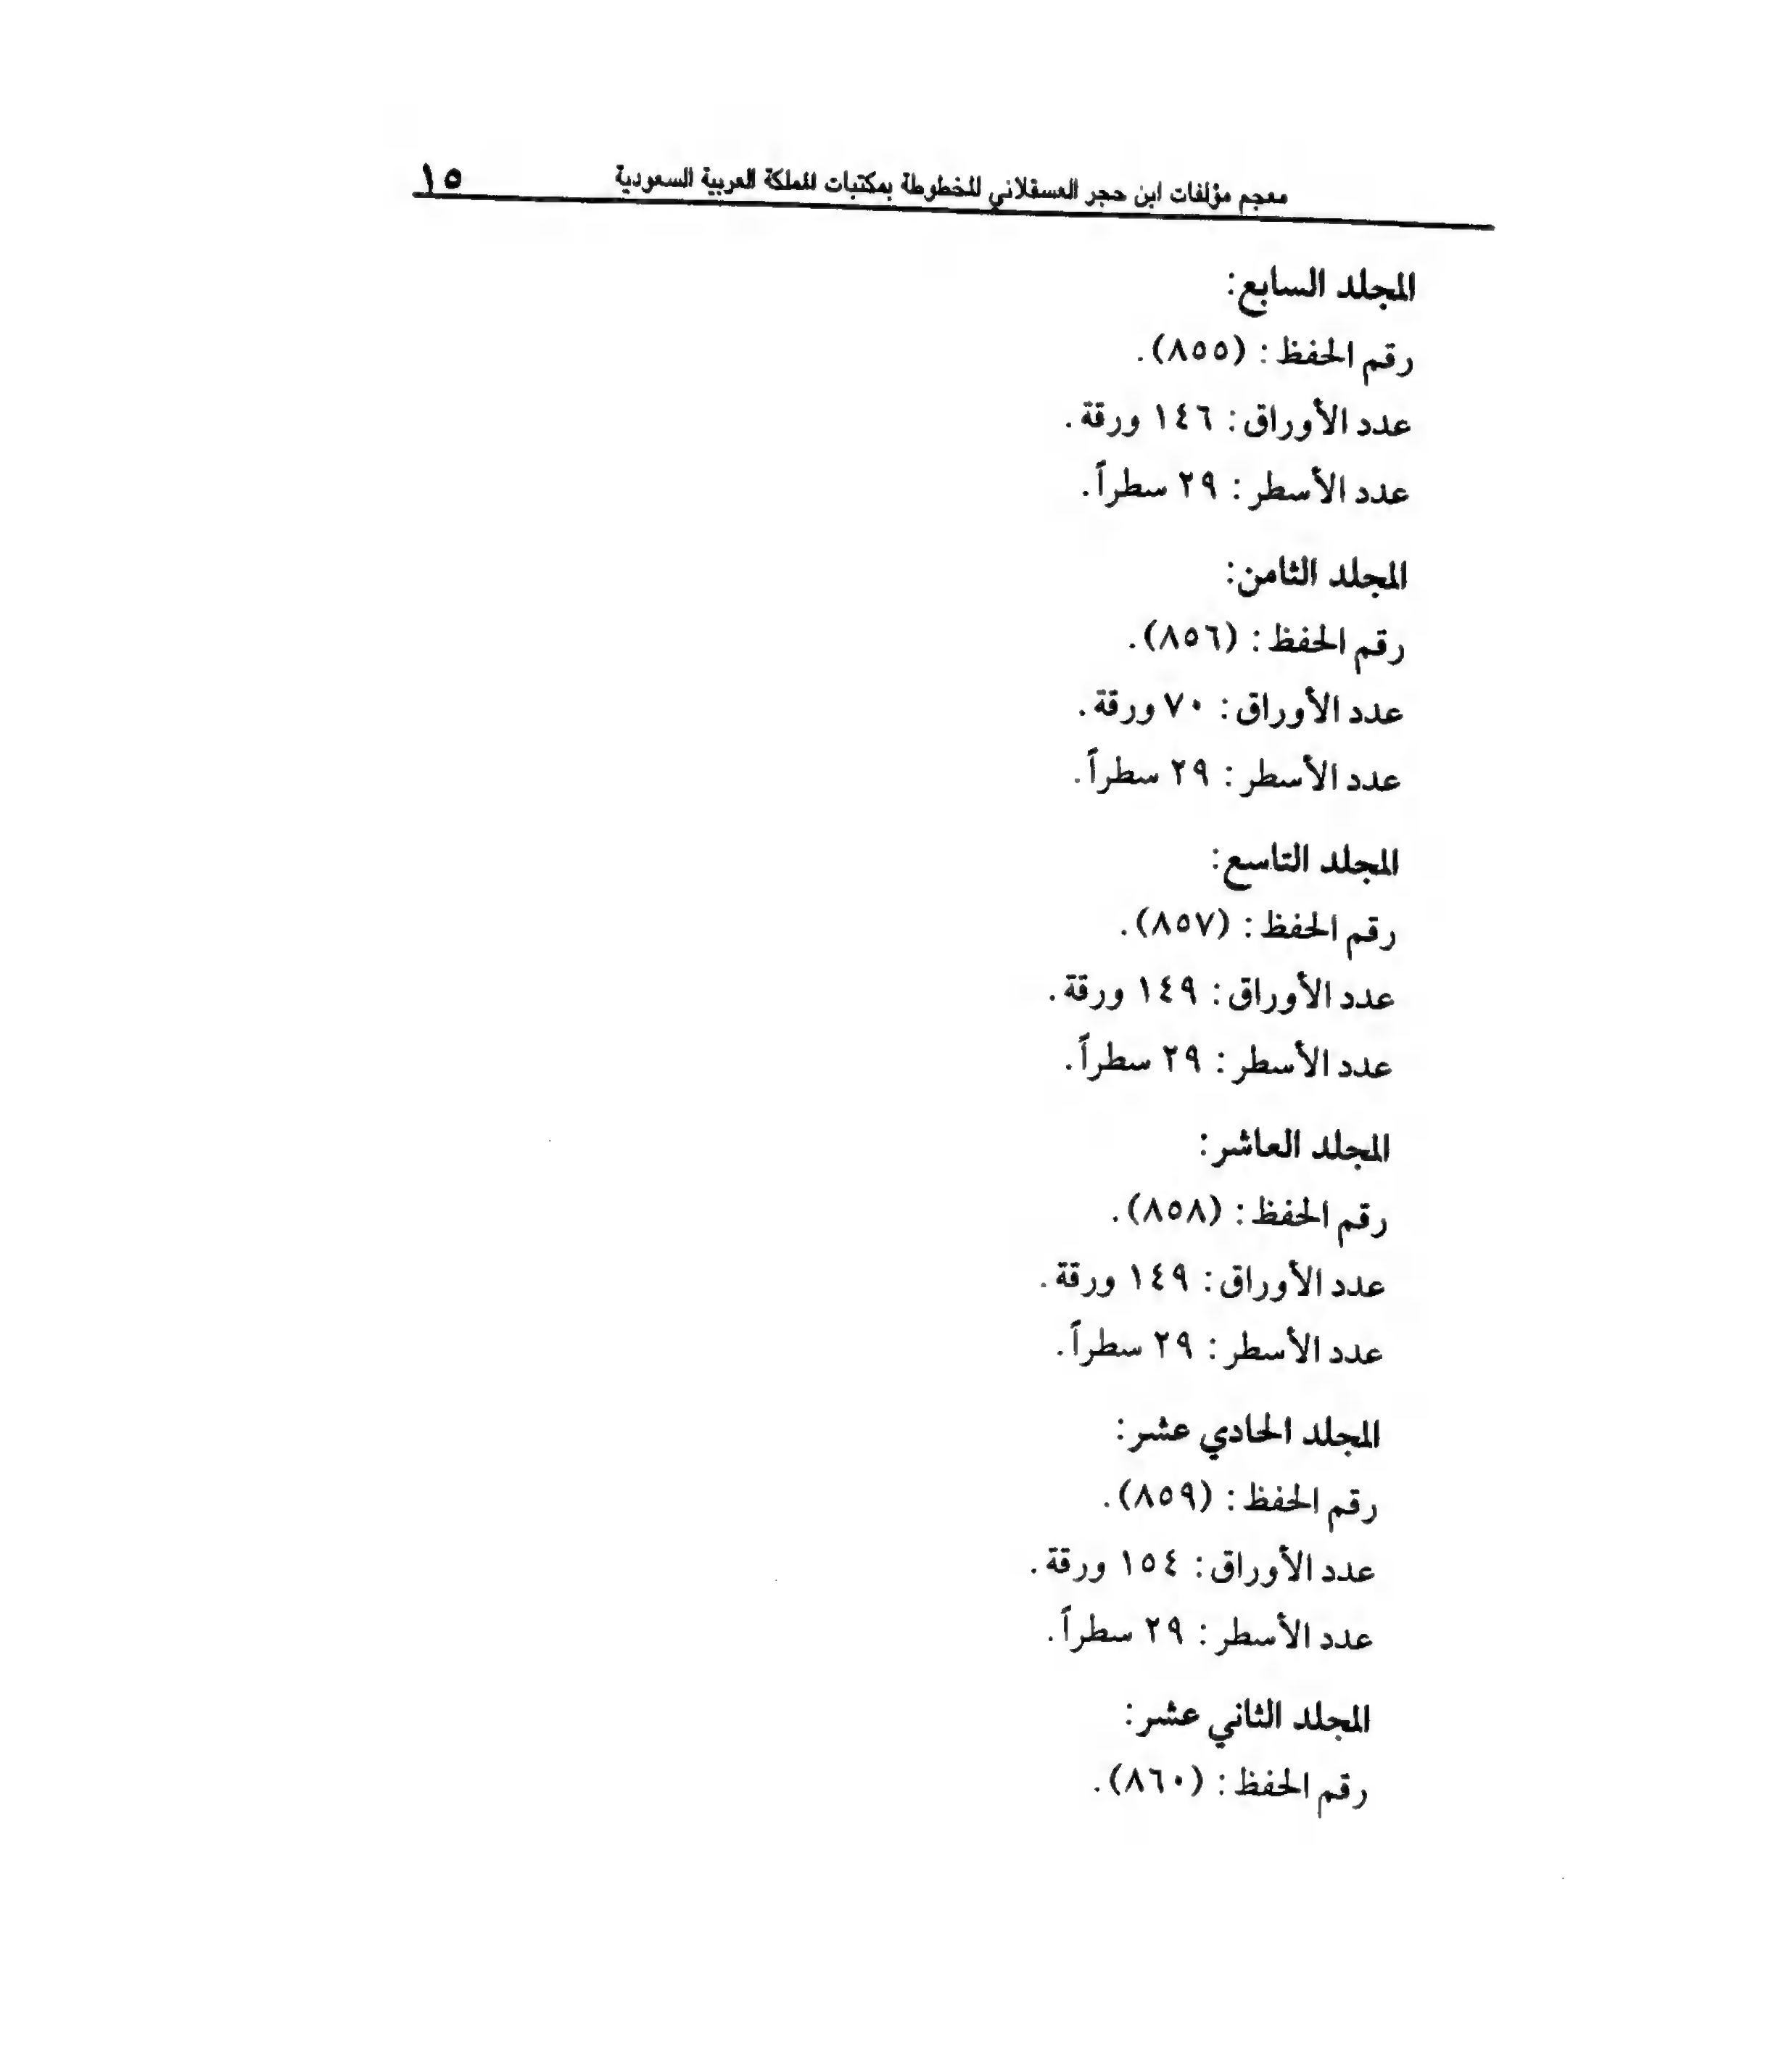 معجم مؤلفات ابن حجر العسقلاني المخطوطة بمكتبات المملكة العربية السعودية ١٥
المجلد السابع:
رقم الحفظ: (٨٥٥).
عدد الأوراق: ١٤٦ ورقة.
عدد الأسطر: ٢٩ سطراً.
المجلد الثامن:
رقم الحفظ: (٨٥٦).
عدد الأوراق: ٧٠ ورقة.
عدد الأسطر: ٢٩ سطراً.
المجلد التاسع:
رقم الحفظ: (٨٥٧).
عدد الأوراق: ١٤٩ ورقة.
عدد الأسطر: ٢٩ سطراً.
المجلد العاشر:
رقم الحفظ: (٨٥٨).
عدد الأوراق: ١٤٩ ورقة.
عدد الأسطر: ٢٩ سطراً.
المجلد الحادي عشر:
رقم الحفظ: (٨٥٩).
عدد الأوراق: ١٥٤ ورقة.
عدد الأسطر: ٢٩ سطراً.
المجلد الثاني عشر:
رقم الحفظ: (٨٦٠).